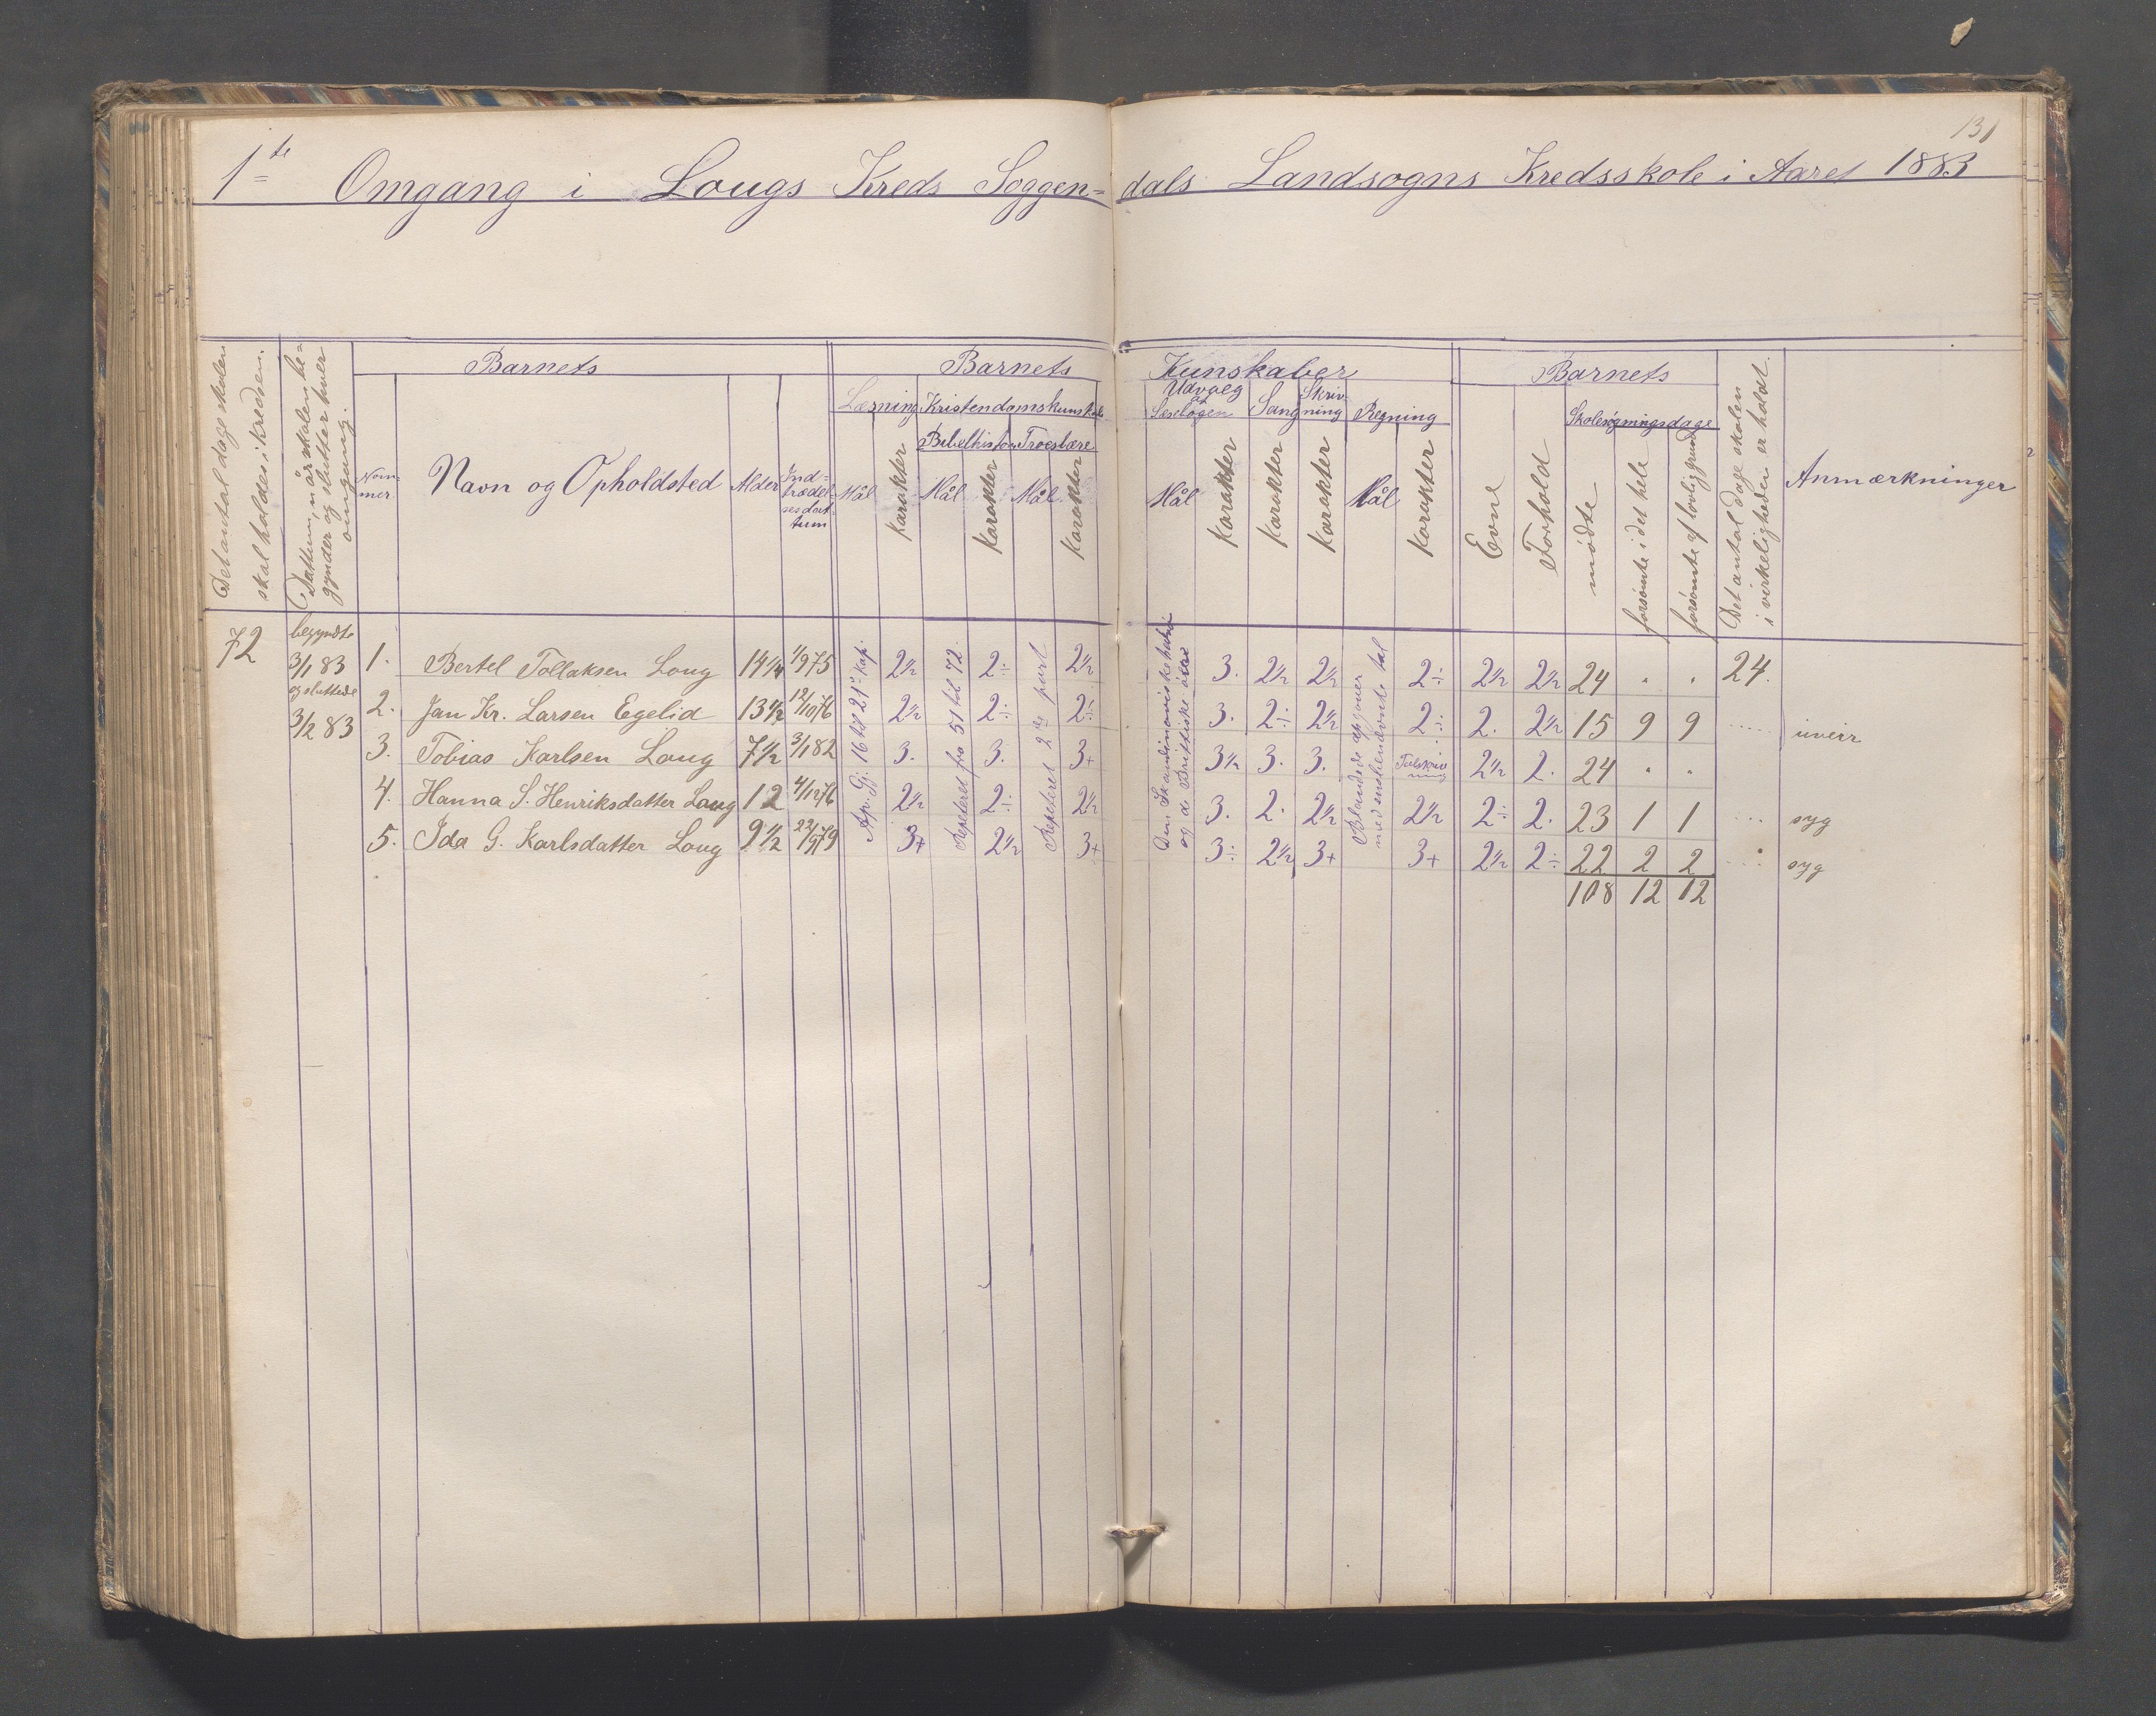 131
1te Omgang i Lougs Kreds Soggen= dals Landsogns Kredsskole i Aaret 1883
Det antal dage skolen skal holdes i kredsen.
Dattum, når skolen be= gynder og slutter hver omgang.
Barnets
Nom= mer
Navn og Opholdsted
Alder
Ind= trædel sesdat tum
Barnets Kunskaber
Læsning
Mål
Karakter
Kristendomskunskab
Bibelhistorie
Mål
Karakter
Troeslære
Mål
Karakter
Udvalg af Læsebogen
Mål
Karakter
Sang
Karakter
Skriv ning
Karakter
Regning
Mål
Karakter
Barnets
Evne
Forhold
Skolesøgningsdage
mödte
forsömte i det hele
forsömte af lovlig grund
Det antal dage skolen i virkeligheden er holdt.
Anmærkninger
72
begyndte
3/1 83
og sluttede
3/2 83
Ap. Gj. 16 til 21de kap.
Repeteret fra 51 til 72.
Repeteret 2den part
Den Skandinaviske halvö og de Brittiske öer
Blandede opgaver med ensbenævnte tal
1. Bertel Tollaksen Loug 14 1/4 1/9 75 2 1/2 2÷ 2 1/2 3. 2 1/2 2 1/2 2÷ 2 1/2 2 1/2 24 " " 24.
2. Jan Kr. Larsen Egelid 13 1/2 12/10 76 2 1/2 2÷ 2÷ 3. 2÷ 2 1/2 2÷ 2. 2 1/2 15 9 9 uveir
3. Tobias Karlsen Loug 7 1/2 3/1 82 3. 3. 3+ 3 1/2 3. 3. Talskriv ning 2 1/2 2. 24 " "
4. Hanna S. Henriksdatter Loug 12 4/12 76 2 1/2 2÷ 2 1/2 3. 2. 2 1/2 2 1/2 2÷ 2. 23 1 1 syg
5. Ida G. Karlsdatter Loug 9 1/2 22/9 79 3+ 2 1/2 3+ 3÷ 2 1/2 3+ 3+ 2 1/2 2÷ 22 2 2 syg
108 12 12